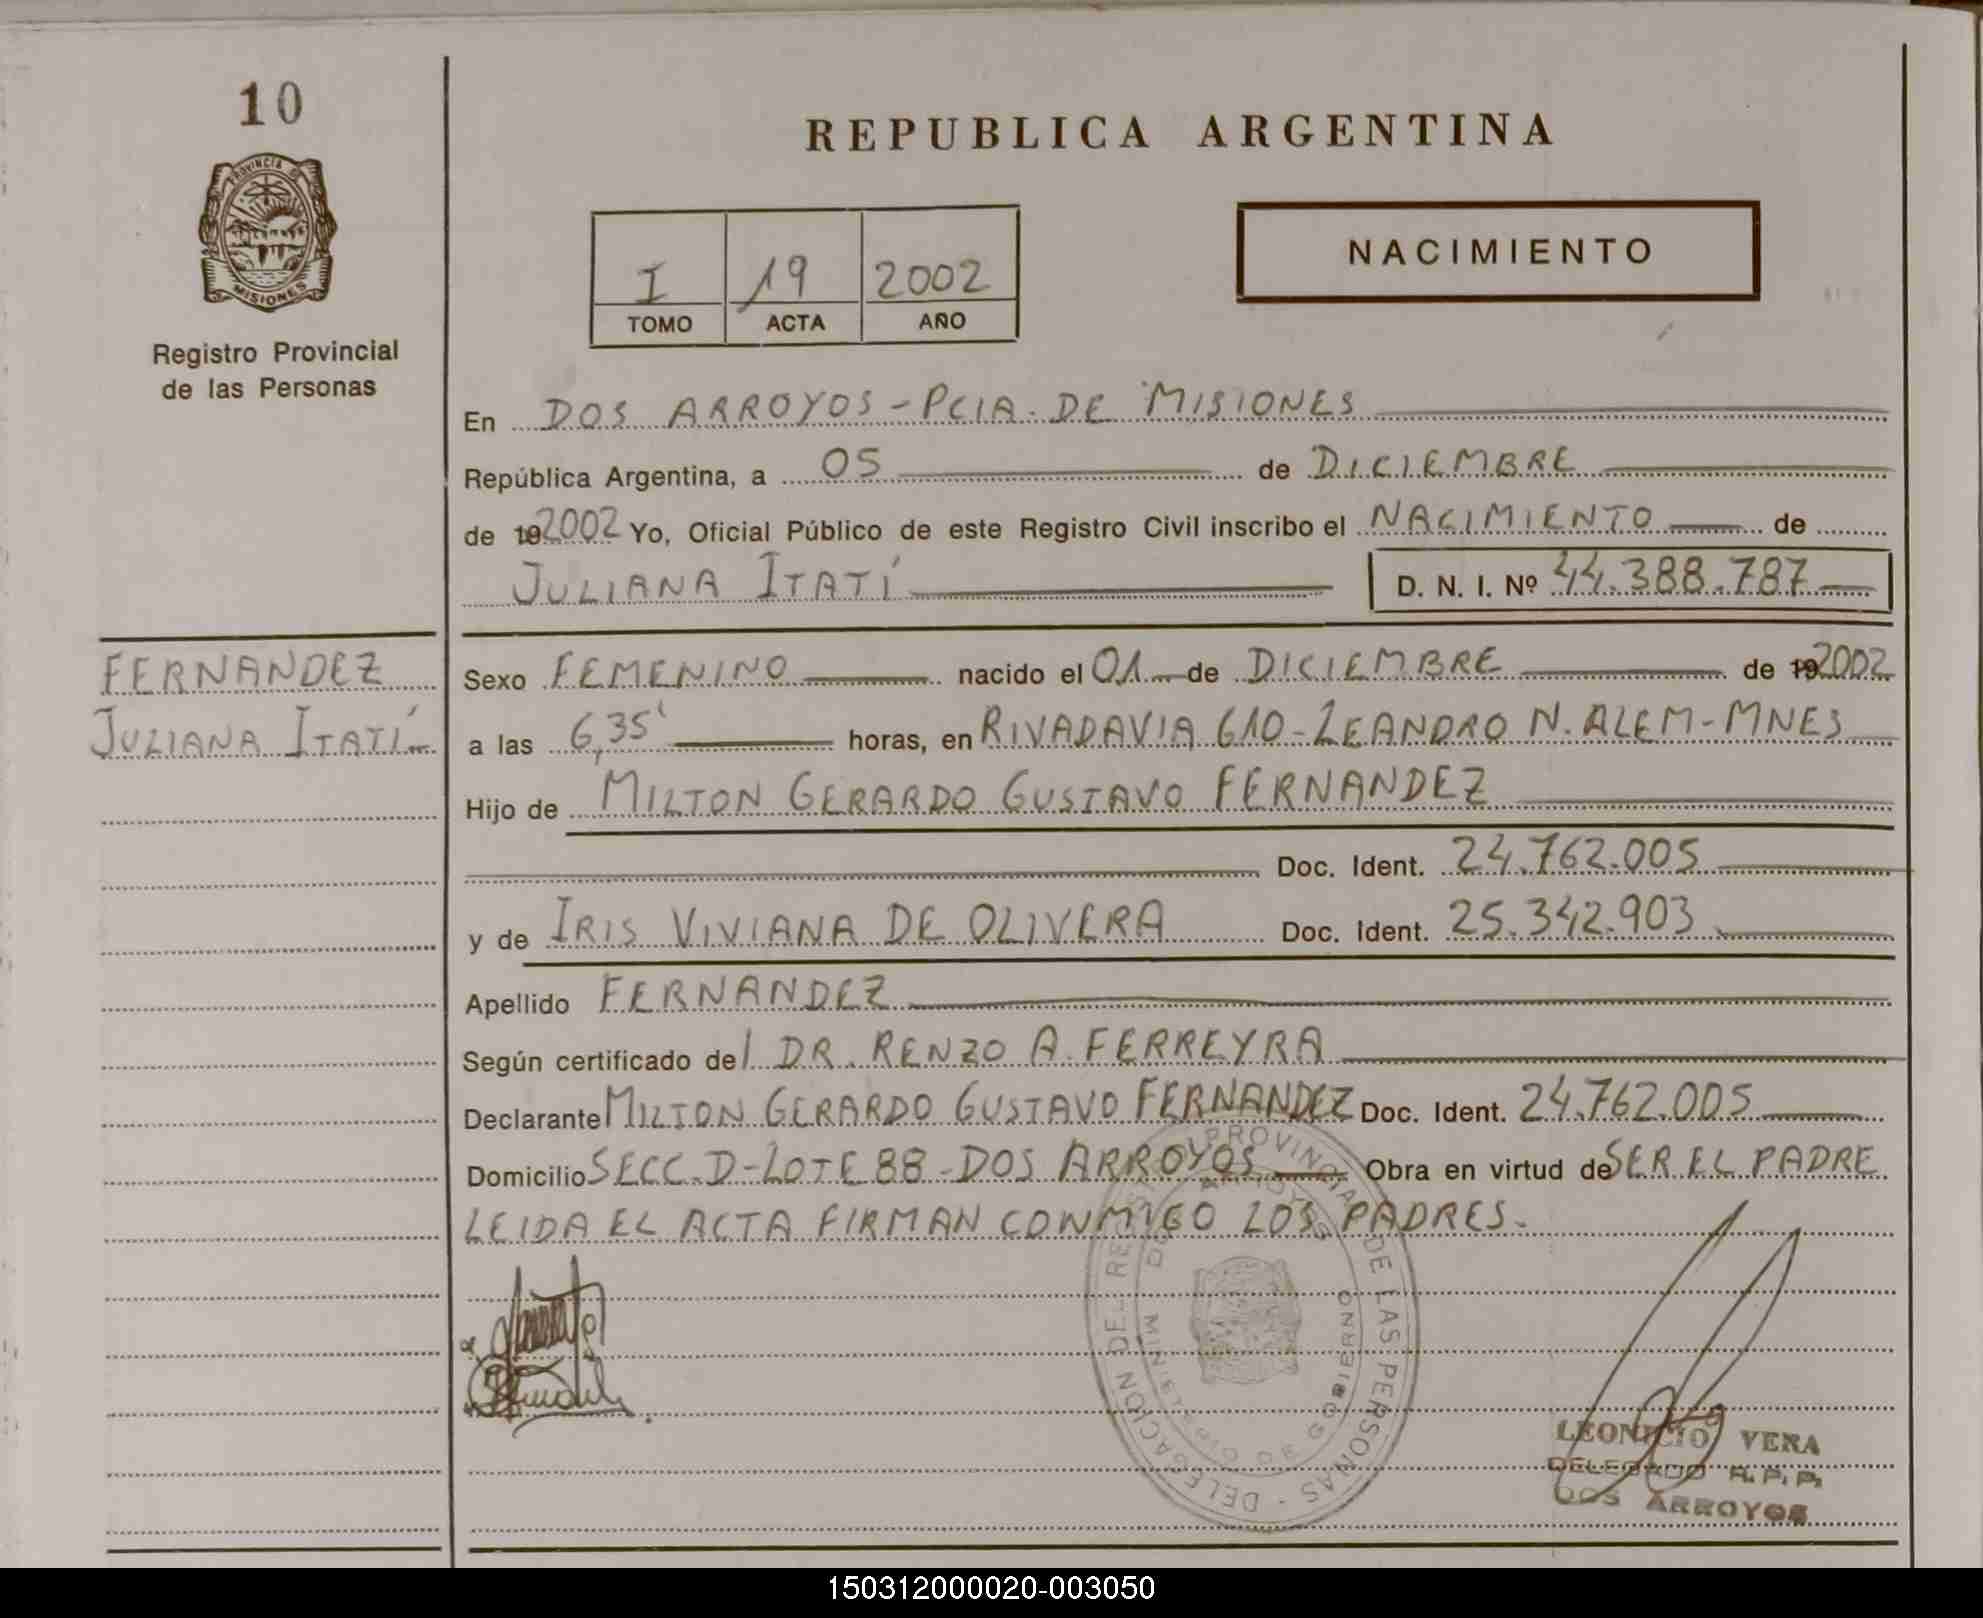 10
PROVINCIA DE
MISIONES
Registro Provincial
de las Personas
REPUBLICA ARGENTINA
I 19 2002
TOMO ACTA AÑO
NACIMIENTO
En DOS ARROYOS - PCIA. DE MISIONES
República Argentina, a 05 de DICIEMBRE
de 192002 Yo, Oficial Público de este Registro Civil inscribo el NACIMIENTO de
JULIANA ITATÍ D. N. I. Nº 44.388.787
FERNANDEZ
JULIANA ITATÍ
Sexo FEMENINO nacido el 01 de DICIEMBRE de 192002
a las 6,35' horas, en RIVADAVIA 610 - LEANDRO N. ALEM - MNES
Hijo de MILTON GERARDO GUSTAVO FERNANDEZ
Doc. Ident. 24.762.005
y de IRIS VIVIANA DE OLIVERA Doc. Ident. 25.342.903
Apellido FERNANDEZ
Según certificado del DR. RENZO A. FERREYRA
Declarante MILTON GERARDO GUSTAVO FERNANDEZ Doc. Ident. 24.762.005
Domicilio SECC. D - LOTE 88 - DOS ARROYOS Obra en virtud de SER EL PADRE
LEIDA EL ACTA FIRMAN CONMIGO LOS PADRES.
DELEGACION DEL REGISTRO PROVINCIAL DE LAS PERSONAS
DOS ARROYOS
MINISTERIO DE GOBIERNO
LEONICIO VERA
DELEGADO R. P. P.
DOS ARROYOS
150312000020-003050